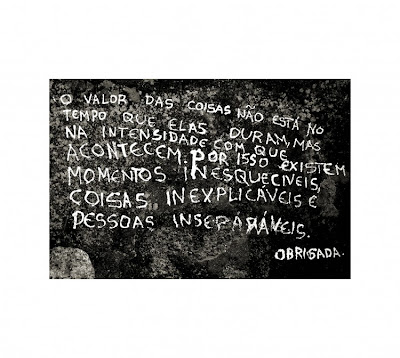 O VALOR DAS COISAS NÃO ESTÁ NO
TEMPO QUE ELAS DURAM, MAS
NA INTENSIDADE COM QUE
ACONTECEM. POR ISSO EXISTEM
MOMENTOS INESQUECIVEIS,
COISAS INEXPLICÁVEIS E
PESSOAS INSEPARÁVEIS.
OBRIGADA.